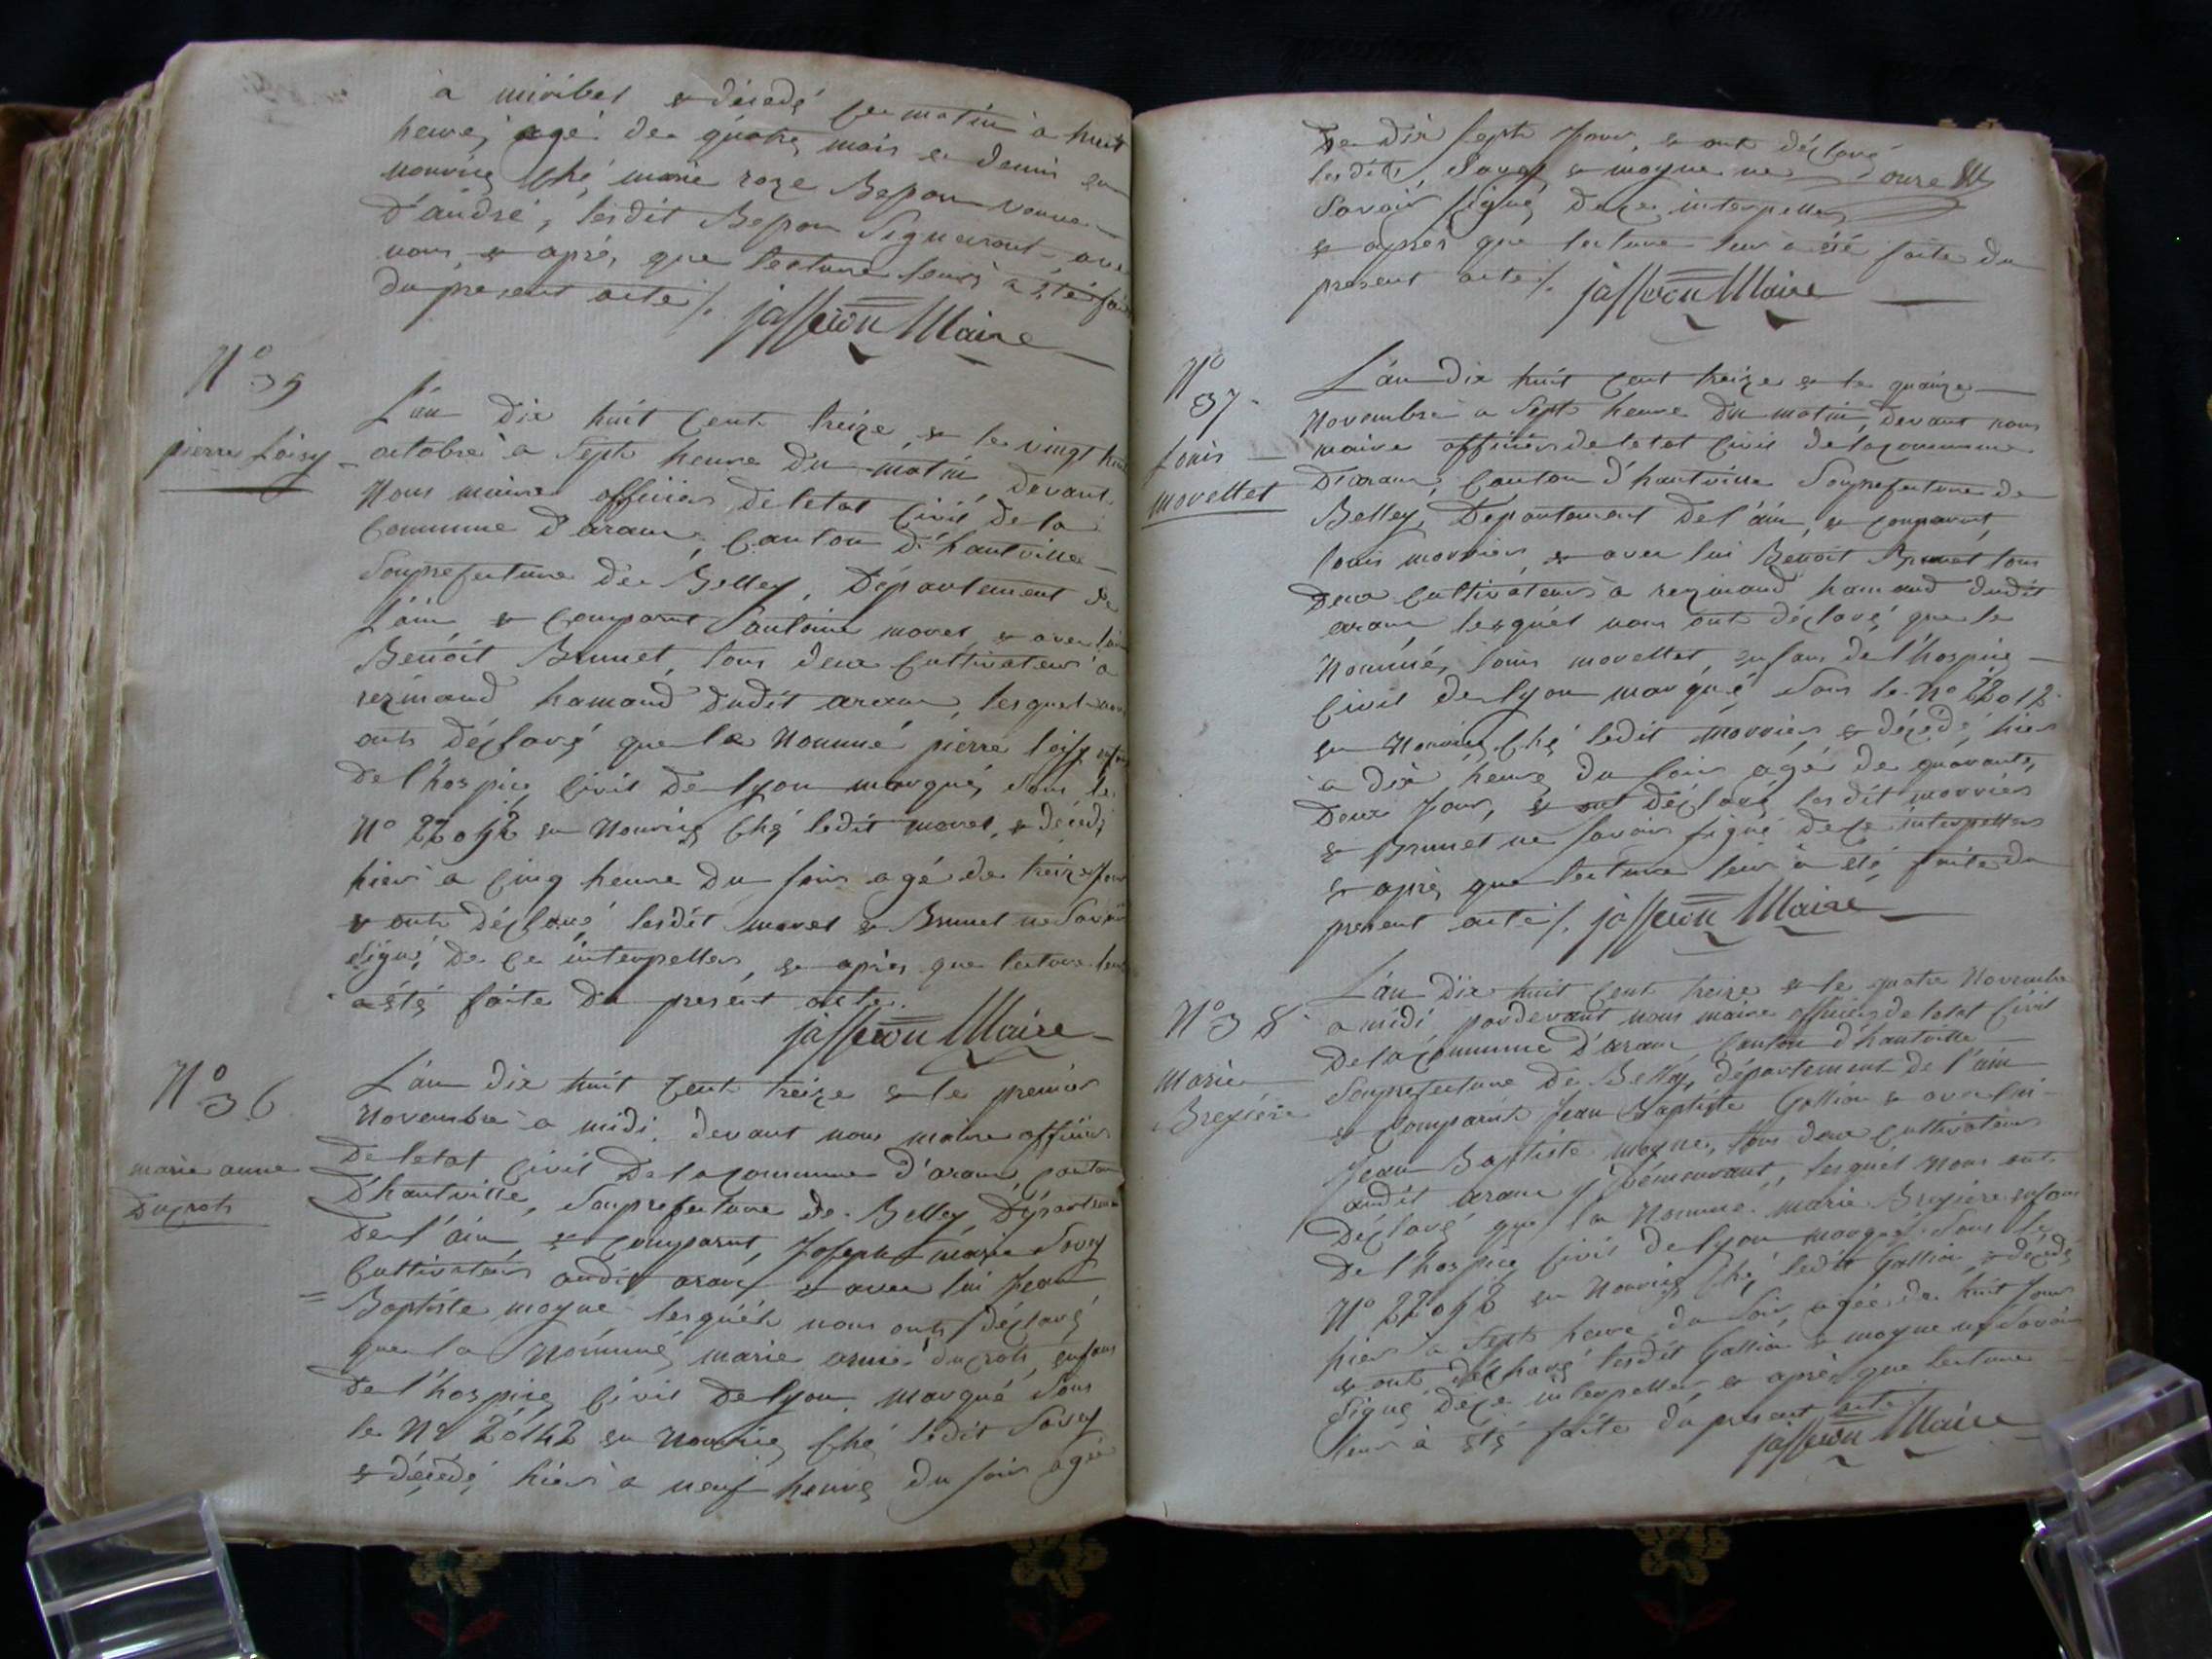 à miribel & décedé ce matin à huit
heures agé de quatre mois & demis en
nourrice ché marie roze Bepon veuve
D'andré, lesdit Bepon Signeront avec
nous & aprés que lecture leurs a été fait
du present acte /. jasseron Maire
N° 35
pierre Loisy
L'an dix huit cent treize & le vingt huit
octobre à Sept heure du matin, devant
Nous maire officier de letat Civil de la
Commune d'aranc, Canton d'hautville
Souprefecture de Belley, Département de
L'ain & comparut antoine moret & avec lui
Benoit Brunet, tous deux Cultivateur à
rezinand hamaud dudit aranc, lesquel nous
onts déclaré que le Nommé pierre loisy enfan
De l'hospice Civil de lyon marqué Sous le
N° 22092 en Nourrice Ché ledit moret, & décedé
hier à Cinq heure du soir agé de treize jour
& onts déclaré lesdit moret & Brunet ne Savoir
Signé de ce interpeller, & aprés que lecture leur
a été faite du present acte.
jasseron Maire
N° 36
marie anne
Ducrots
L'an dix huit Cent treize & le premier
Novembre à midi, devant nous maire officier
De letat Civil de la Commune d'aranc, Canton
D'hautville, Souprefecture de Belley, Départemen
De l'ain, & Comparut, Joseph marie Savey
Cultivateur audit aranc & avec lui Jean
Baptiste moyne lesquels nous onts déclaré
que la Nommé marie anne ducrots, enfans
De l'hospice Civil De lyon, marqué Sous
le N° 20142 en Nourrice Ché ledit Savey
& décedé hier à neuf heures du soir agée
De dix Sept Jour, & ont déclaré
lesdits Savey & moyne ne
Savoir Signé De ce interpeller
& aprés que lecture leur a été faite du
present acte /. jasseron Maire
N° 37
Louis
movettet
L'an dix huit Cent treize & le quainze
Novembre a Sept heure du matin, devant nous
maire officier de letat Civil de la Commune
D'aranc, Canton d'hautville Souprefecture de
Belley, Departement de l'ain, & Comparut,
Louis morrier, & avec lui Benoit Brunet tous
Deux Cultivateurs à rezinand hamaud dudit
aranc, lesquel nous ont déclaré que le
Nommé, Louis movettet, enfans de l'hospice
Civil de lyon marqué Sous le N° 22012
en Nourrice Ché ledit morrier & décedé hier
à dix heure du soir agé de quarante
Deux Jour, & ont déclaré lesdit morrier
& Brunet ne Savoir Signé de ce interpeller
& aprés que lecture leur à été faite du
present acte /. jasseron Maire
N° 38
Marie
Brexiere
L'an dix huit Cent treize & le quatre Novembre
a midi, pardevant nous maire officier de letat Civil
De la Commune D'aranc Canton d'hautville
Souprefecture De Belley, département de l'ain
& Comparut Jean Baptiste Gallion & avec lui
Jean Baptiste moyne, tous deux Cultivateurs
audit aranc y demeurant, lesquel Nous ont
Déclaré que la Nommé marie Brexiere enfans
De l'hospice Civil de lyon marqué Sous le
N° 22092 en Nourrice Ché ledit Gallion & décedé
hier à Sept heure du Soir, agée de huit Jour
& ont déclaré lesdit Gallion & moyne ne Savoir
Signé de ce interpeller, & aprés que lecture
leur à été faite du present acte
jasseron Maire